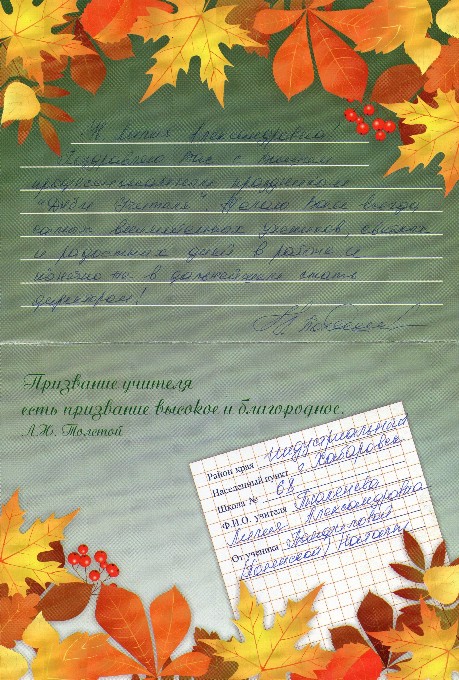 Лилия Александровна!
Поздравляю Вас с
профессиональным праздником
"Днём Учителя" Желаю Вам всегда
самых внимательных учеников,
и радостных дней в работе и
конечно же в дальнейшем стать
директором!
Призвание учителя
есть призвание высокое и благородное.
Л.Н. Толстой
Район края Индустриальный
Населенный пункт г. Хабаровск
Школа №
Ф.И.О. учителя
Лилия Александровна
От ученика
Натальи